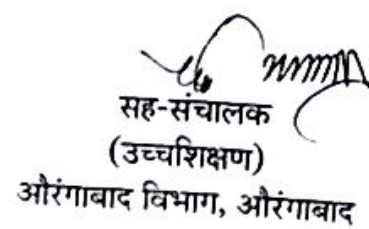 सह-संचालक
(उच्चशिक्षण)
औरंगाबाद विभाग, औरंगाबाद